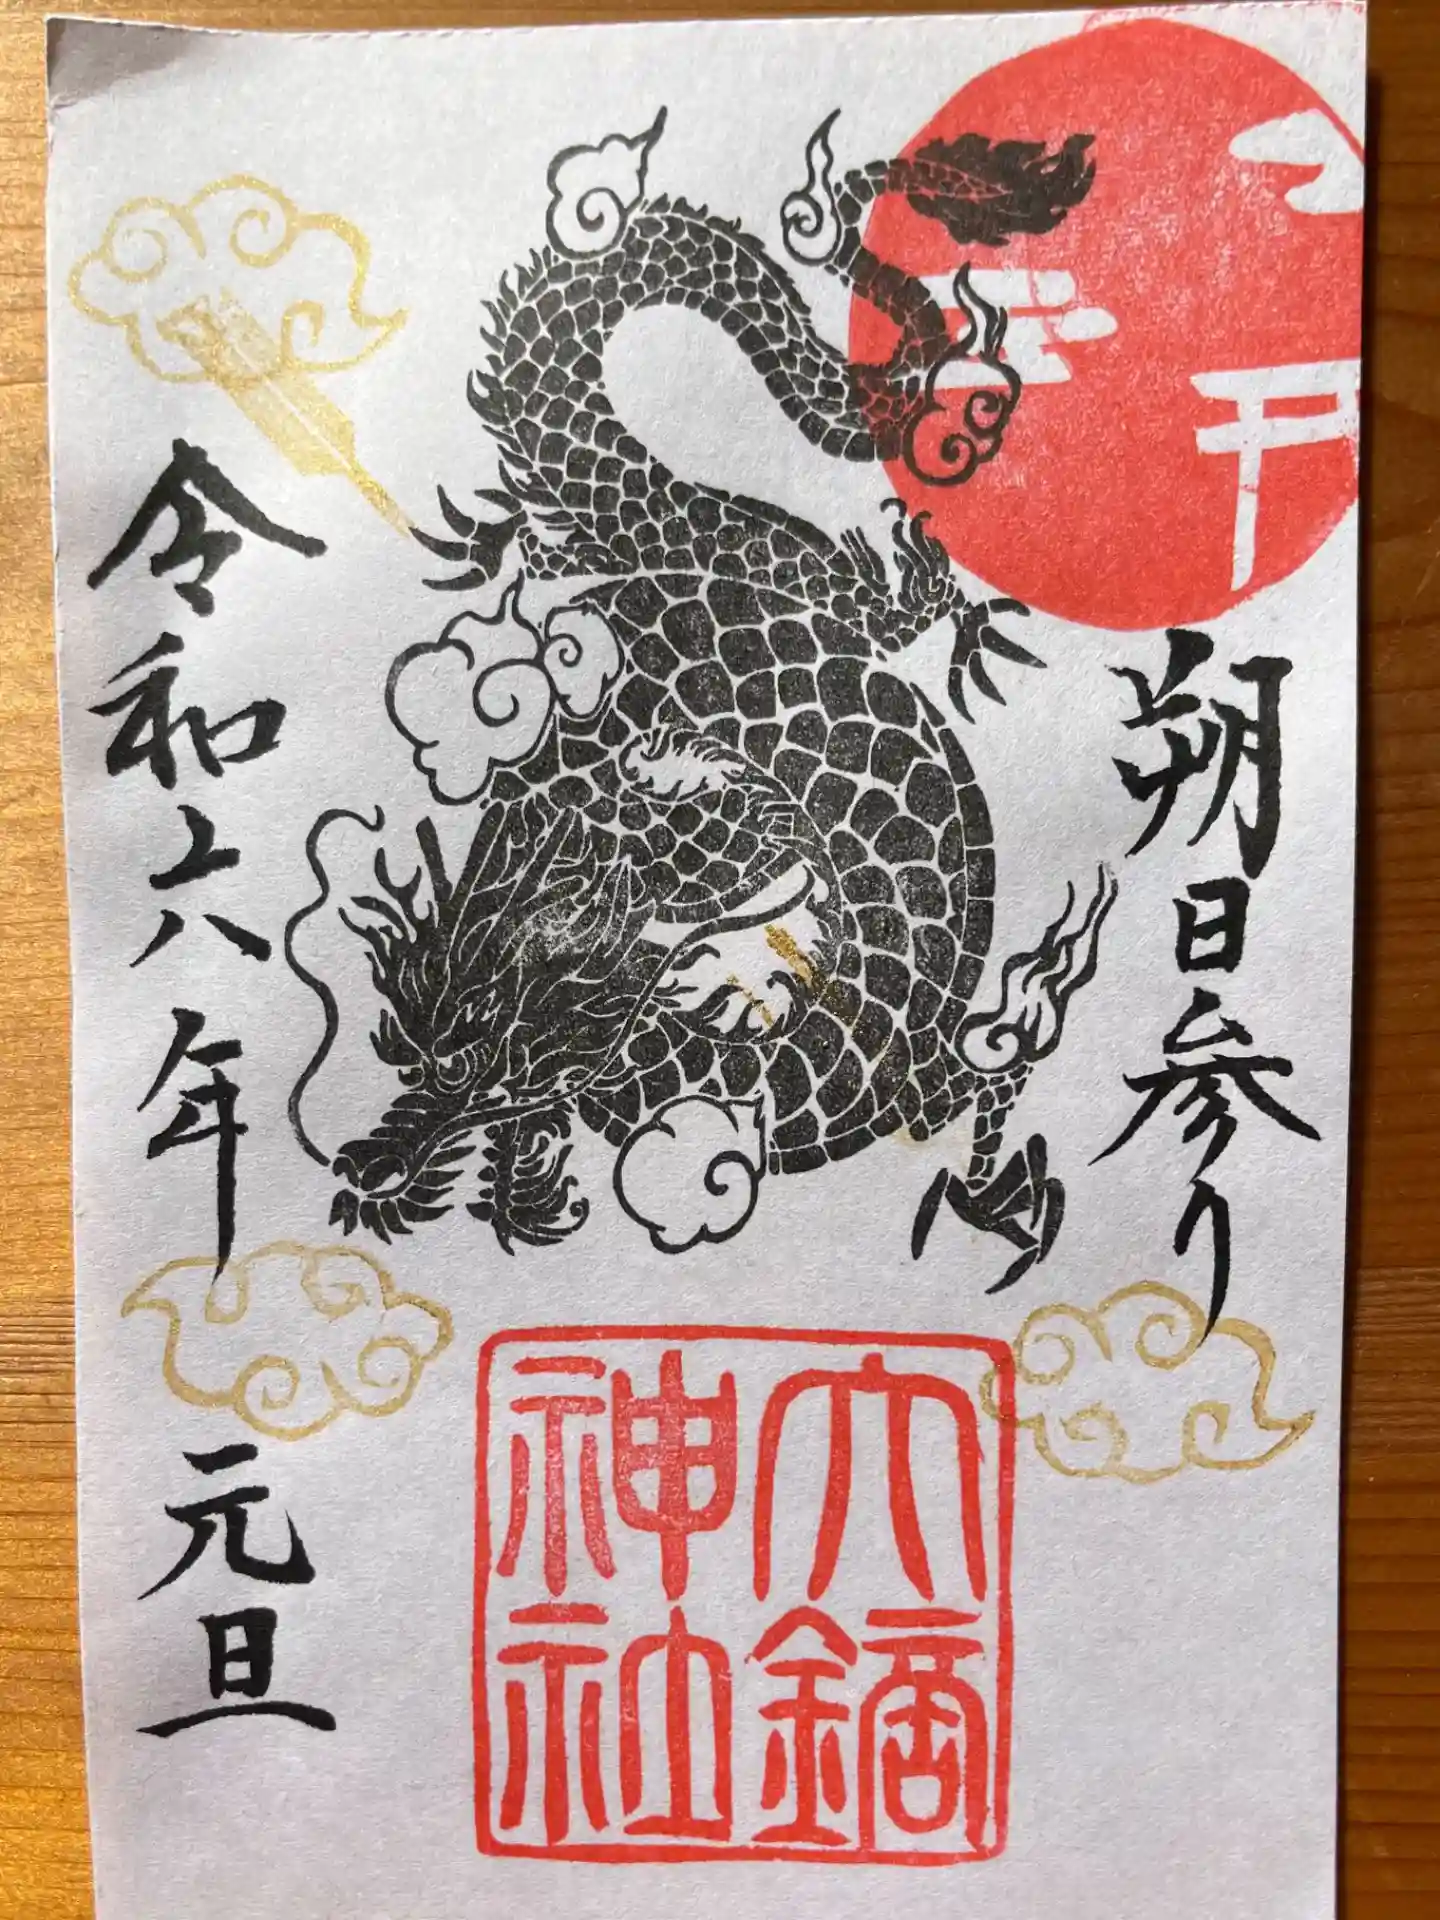 朔日参り
令和六年
元旦
六鏑
神社